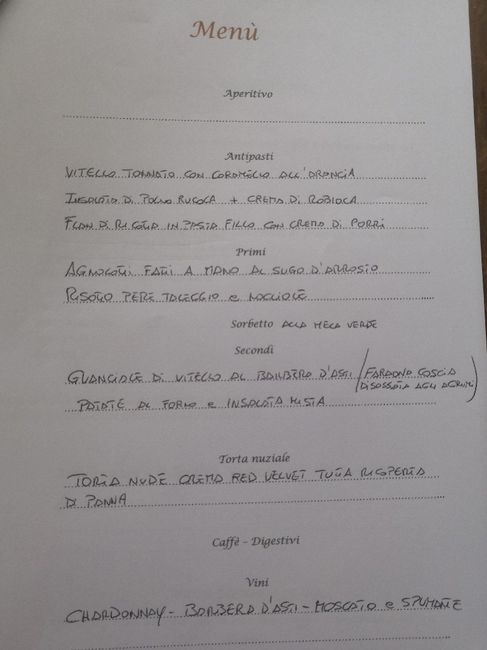 Menù
Aperitivo
Antipasti
VITELLO TONNATO CON CARAMELLO ALL'ARANCIA
INSALATA DI POLLO RUCOLA + CREMA DI ROBIOLA
FLAN DI RICOTTA IN PASTA FILLO CON CREMA DI PORRI
Primi
AGNOLOTTI FATTI A MANO AL SUGO D'ARROSTO
RISOTTO PERE TALEGGIO e NOCCIOLE
Sorbetto ALLA MELA VERDE
Secondi
GUANCIALE DI VITELLO AL BARBERA D'ASTI / FARAONA COSCIA
DISOSSATA AGLI AGRUMI)
PATATE AL FORNO e INSALATA MISTA
Torta nuziale
TORTA NUDE CREMA RED VELVET TUTTA RICOPERTA
DI PANNA
Caffè - Digestivi
Vini
CHARDONNAY - BARBERA D'ASTI - MOSCATO e SPUMANTE